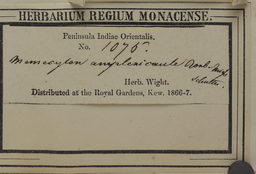 HERBARIUM REGIUM MONACENSE.
Peninsula Indiae Orientalis,
No. 1075.
Memecylon amplexicaule Roxb.
Herb. Wight.
Distributed at the Royal Gardens, Kew. 1866-7.